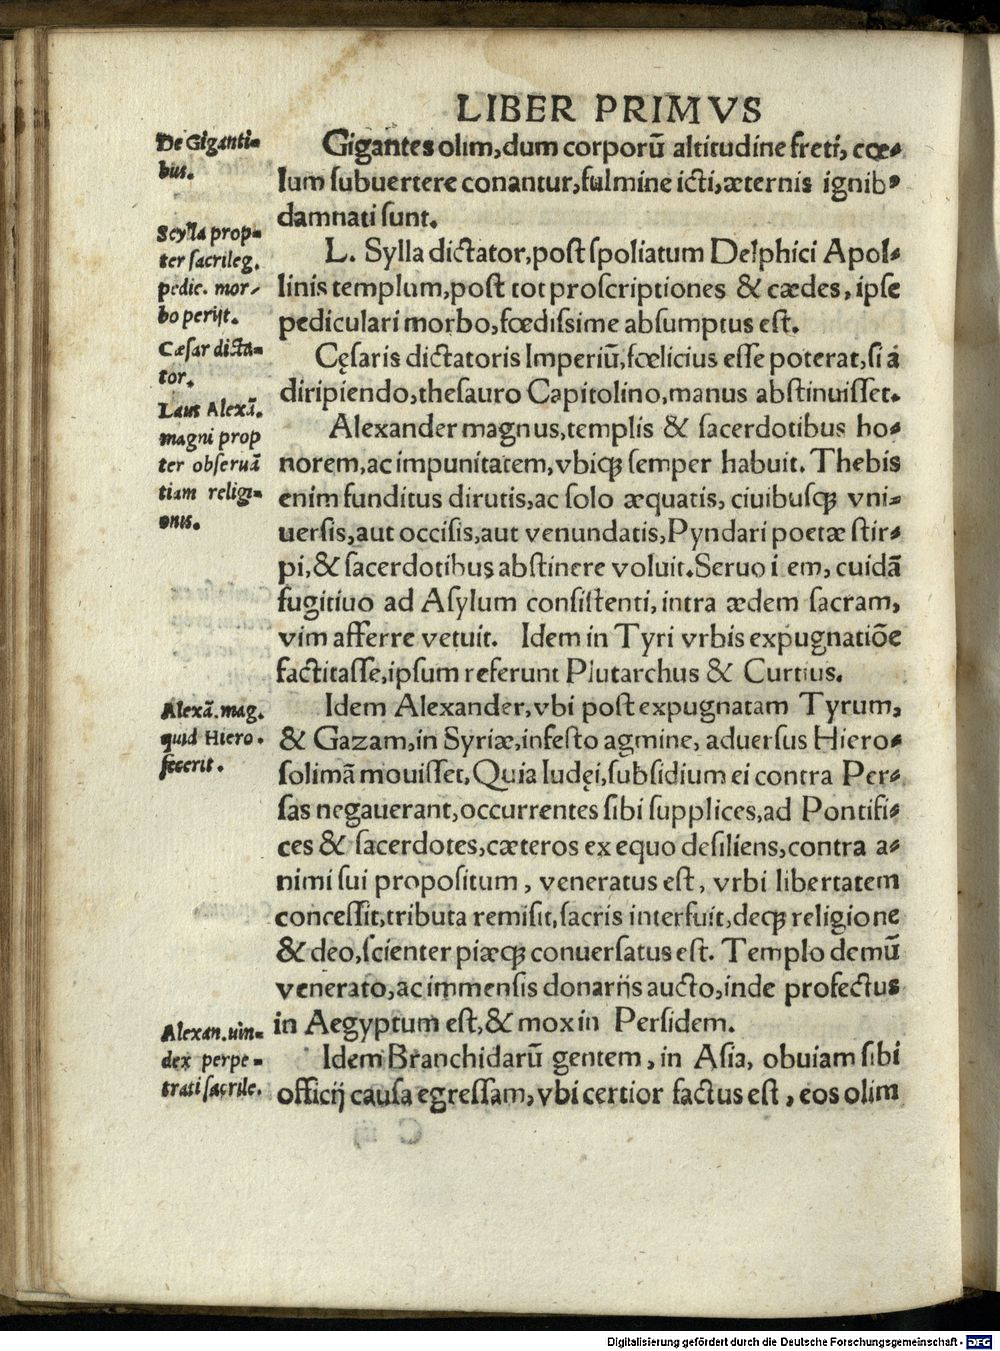 LIBER PRIMVS
De Giganti-
bus.
Gigantes olim, dum corporū altitudine freti, cœ-
lum subuertere conantur, fulmine icti, æternis ignibꝰ
damnati sunt.
Scylla prop-
ter sacrileg.
pedic. mor-
bo perijt.
L. Sylla dictator, post spoliatum Delphici Apol-
linis templum, post tot proscriptiones & cædes, ipse
pediculari morbo, fœdissime absumptus est.
Cæsar dicta-
tor.
Cęsaris dictatoris Imperiū, fœlicius esse poterat, si a
diripiendo, thesauro Capitolino, manus abstinuisset.
Laus Alexā.
magni prop
ter obseruā
tiam religi-
onis.
Alexander magnus, templis & sacerdotibus ho-
norem, ac impunitatem, vbiqꝫ semper habuit. Thebis
enim funditus dirutis, ac solo æquatis, ciuibusqꝫ vni-
uersis, aut occisis, aut venundatis, Pyndari poetæ stir-
pi, & sacerdotibus abstinere voluit. Seruo i em, cuidā
fugitiuo ad Asylum consistenti, intra ædem sacram,
vim afferre vetuit. Idem in Tyri vrbis expugnatiōe
factitasse, ipsum referunt Plutarchus & Curtius.
Alexā. mag.
quid Hiero.
fecerit.
Idem Alexander, vbi post expugnatam Tyrum,
& Gazam, in Syriæ, infesto agmine, aduersus Hiero-
solimā mouisset, Quia Iudęi, subsidium ei contra Per-
sas negauerant, occurrentes sibi supplices, ad Pontifi-
ces & sacerdotes, cæteros ex equo desiliens, contra a-
nimi sui propositum, veneratus est, vrbi libertatem
concessit, tributa remisit, sacris interfuit, deqꝫ religione
& deo, scienter piæqꝫ conuersatus est. Templo demū
venerato, ac immensis donarijs aucto, inde profectus
in Aegyptum est, & mox in Persidem.
Alexan. uin-
dex perpe-
trati sacrile.
Idem Branchidarū gentem, in Asia, obuiam sibi
officij causa egressam, vbi certior factus est, eos olim
Digitalisierung gefördert durch die Deutsche Forschungsgemeinschaft - DFG